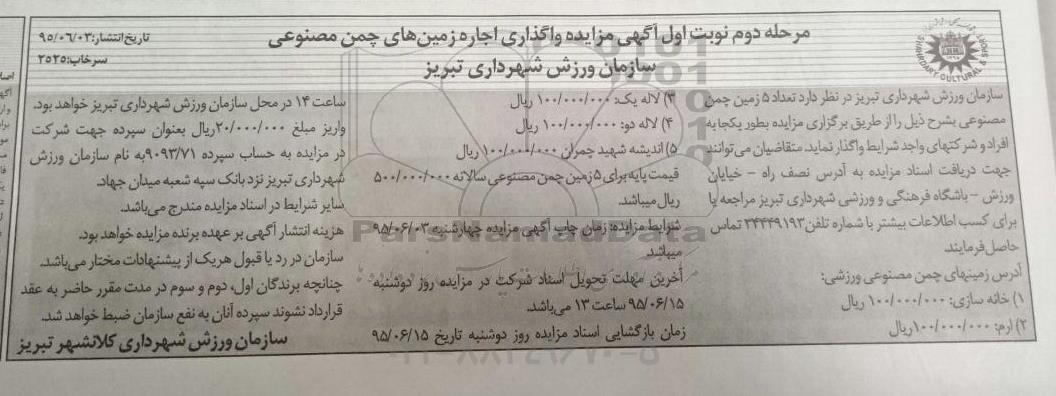 مرحله دوم نوبت اول آگهی مزایده واگذاری اجاره زمین‌های چمن مصنوعی
سازمان ورزش شهرداری تبریز
تاریخ انتشار: ۹۵/۰۶/۰۳
سرخاب: ۲۵۲۵
سازمان ورزش شهرداری تبریز در نظر دارد تعداد ۵ زمین چمن
مصنوعی بشرح ذیل را از طریق برگزاری مزایده بطور یکجا به
افراد و شرکتهای واجد شرایط واگذار نماید. متقاضیان می‌توانند
جهت دریافت اسناد مزایده به آدرس نصف راه – خیابان
ورزش – باشگاه فرهنگی و ورزشی شهرداری تبریز مراجعه یا
برای کسب اطلاعات بیشتر با شماره تلفن ۳۴۴۴۹۱۹۳ تماس
حاصل فرمایند.
آدرس زمینهای چمن مصنوعی ورزشی:
۱) خانه سازی: ۱۰۰/۰۰۰/۰۰۰ ریال
۲) ارم: ۱۰۰/۰۰۰/۰۰۰ ریال
۳) لاله یک: ۱۰۰/۰۰۰/۰۰۰ ریال
۴) لاله دو: ۱۰۰/۰۰۰/۰۰۰ ریال
۵) اندیشه شهید چمران ۱۰۰/۰۰۰/۰۰۰ ریال
قیمت پایه برای ۵ زمین چمن مصنوعی سالانه ۵۰۰/۰۰۰/۰۰۰
ریال میباشد.
شرایط مزایده: زمان چاپ آگهی مزایده چهارشنبه ۹۵/۰۶/۰۳
میباشد.
آخرین مهلت تحویل اسناد شرکت در مزایده روز دوشنبه
۹۵/۰۶/۱۵ ساعت ۱۳ می‌باشد.
زمان بازگشایی اسناد مزایده روز دوشنبه تاریخ ۹۵/۰۶/۱۵
ساعت ۱۴ در محل سازمان ورزش شهرداری تبریز خواهد بود.
واریز مبلغ ۲۰/۰۰۰/۰۰۰ ریال بعنوان سپرده جهت شرکت
در مزایده به حساب سپرده ۹۰۹۳/۷۱ به نام سازمان ورزش
شهرداری تبریز نزد بانک سپه شعبه میدان جهاد.
سایر شرایط در اسناد مزایده مندرج می‌باشد.
هزینه انتشار آگهی بر عهده برنده مزایده خواهد بود.
سازمان در رد یا قبول هریک از پیشنهادات مختار می‌باشد.
چنانچه برندگان اول، دوم و سوم در مدت مقرر حاضر به عقد
قرارداد نشوند سپرده آنان به نفع سازمان ضبط خواهد شد.
سازمان ورزش شهرداری کلانشهر تبریز
ParsNamadData
۰۲۱-۸۸۳۴۹۶۷۰-۵